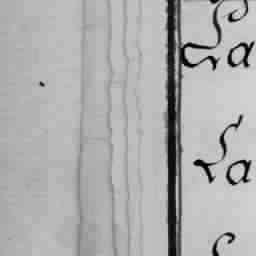 La
La